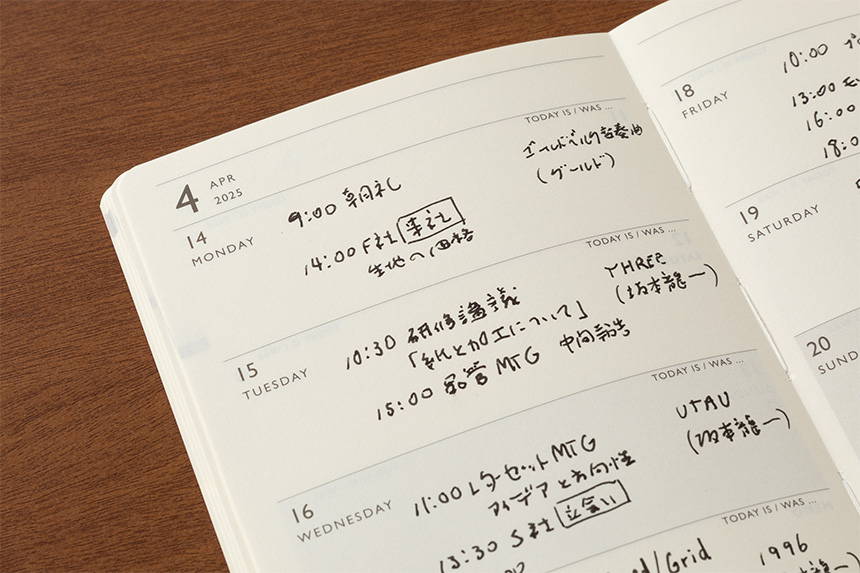 4 APR
2025
14
MONDAY
TODAY IS / WAS ...
9:00 朝礼
14:00 F社 来社
生地の価格
ゴールドベルク変奏曲
(グールド)
15
TUESDAY
TODAY IS / WAS ...
10:30 研修講義
「紙と加工について」
15:00 品管 MTG 中間報告
THREE
(坂本龍一)
16
WEDNESDAY
TODAY IS / WAS ...
11:00 レターセット MTG
アイデアと方向性
13:30 S社 立会い
UTAU
(坂本龍一)
TODAY IS / WAS ...
/Grid
1996
(坂本龍一)
18
FRIDAY
10:00
13:00
16:00
18:0
19
SATURDAY
20
SUND